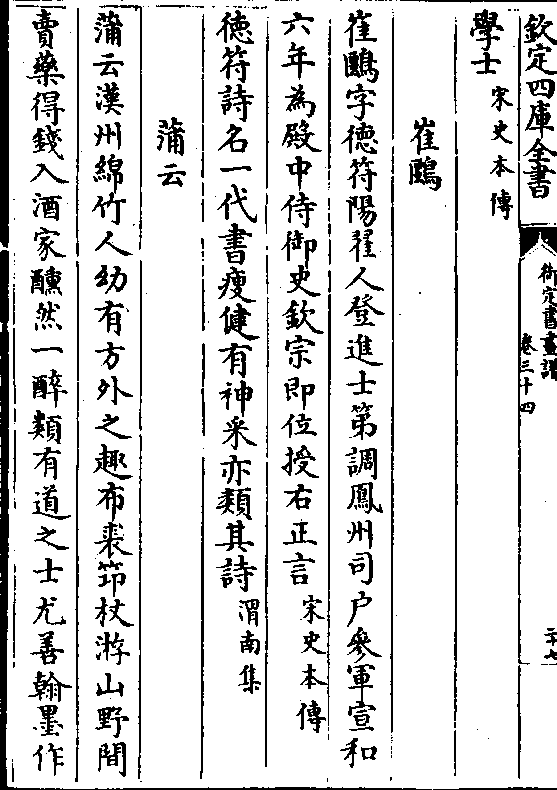 欽定四庫全書
御定書畫譜
卷三十四
二十七
學士宋史本傳
崔鷗
崔鷗字德符陽翟人登進士第調鳳州司户參軍宣和
六年為殿中侍御史欽宗即位授右正言宋史本傳
德符詩名一代書瘦健有神采亦類其詩渭南集
蒲云
蒲云漢州綿竹人幼有方外之趣布裘笻杖游山野間
賣藥得錢入酒家醺然一醉類有道之士尤善翰墨作